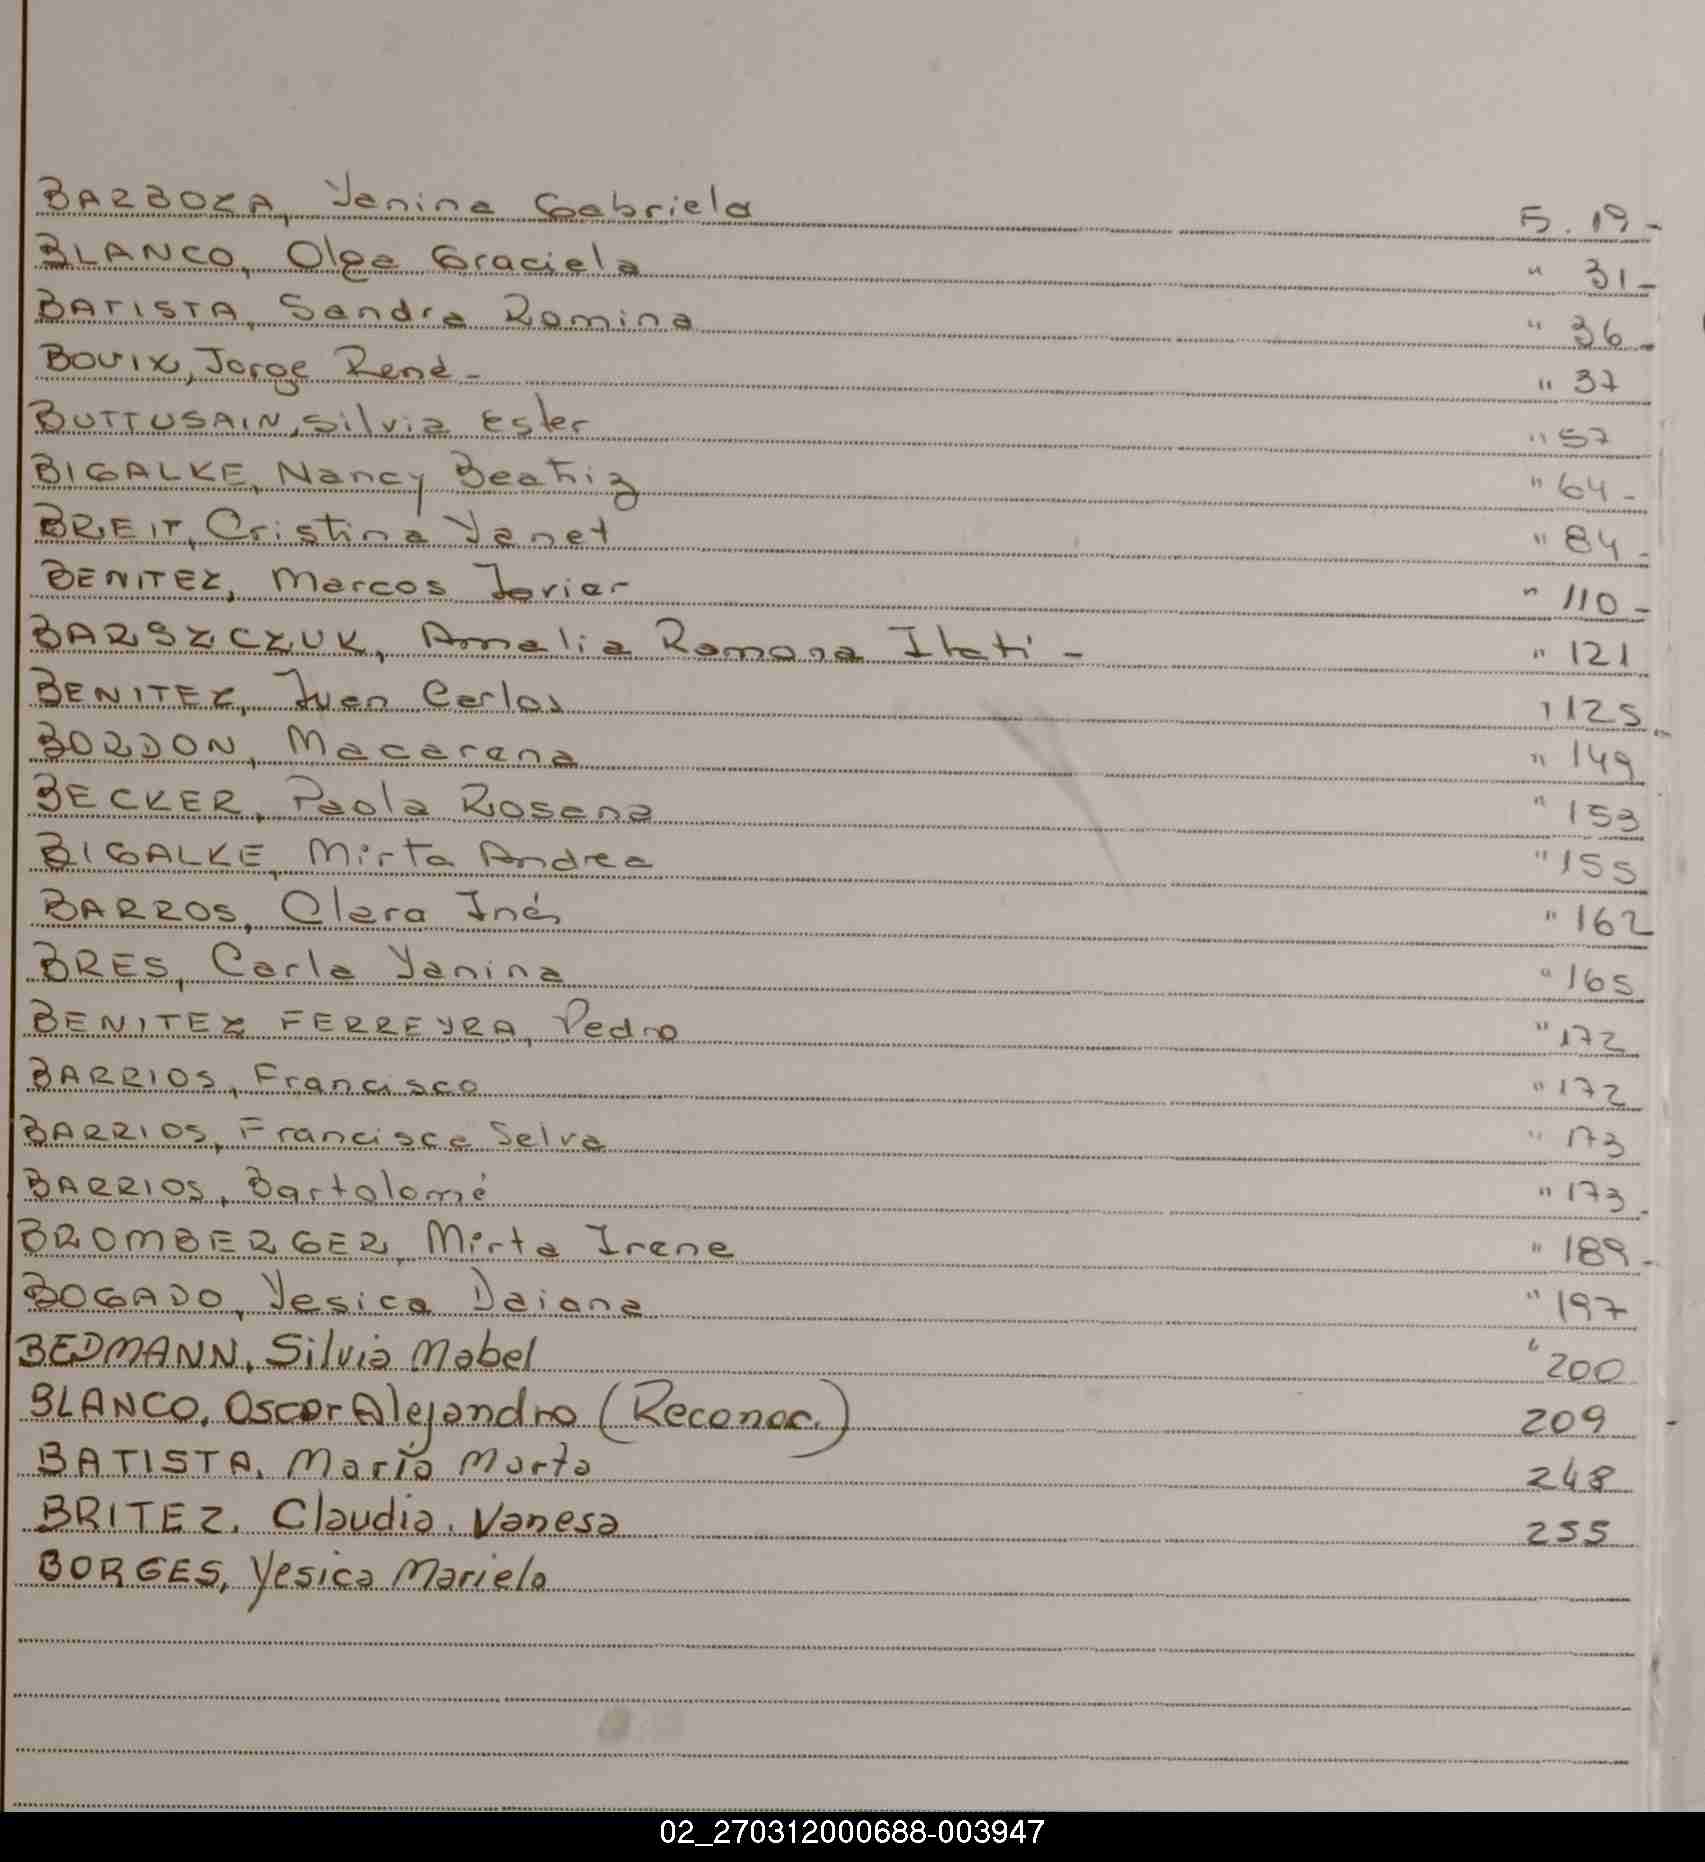 BARBOZA, Yanina Gabriela F. 19-
BLANCO, Olga Graciela " 31-
BATISTA, Sandra Romina " 36-
BOUIX, Jorge René- " 37
BUTTUSAIN, Silvia Ester " 57
BIGALKE, Nancy Beatriz " 64-
BREIT, Cristina Yanet " 84-
BENITEZ, Marcos Javier " 110-
BARSZCZUK, Amalia Ramona Itati- " 121
BENITEZ, Juan Carlos " 125
BORDON, Macarena " 149
BECKER, Paola Rosana " 153
BIGALKE, Mirta Andrea " 155
BARROS, Clara Inés " 162
BRES, Carla Yanina " 165
BENITEZ FERREYRA, Pedro " 172
BARRIOS, Francisco " 172
BARRIOS, Francisca Selva " 173
BARRIOS, Bartolomé " 173
BROMBERGER, Mirta Irene " 189-
BOGADO, Yesica Daiana " 197
BEDMANN, Silvia Mabel " 200
BLANCO, Oscar Alejandro (Reconoc.) 209
BATISTA, María Marta 248
BRITEZ, Claudia, Vanesa 255
BORGES, Yesica Mariela
02_270312000688-003947